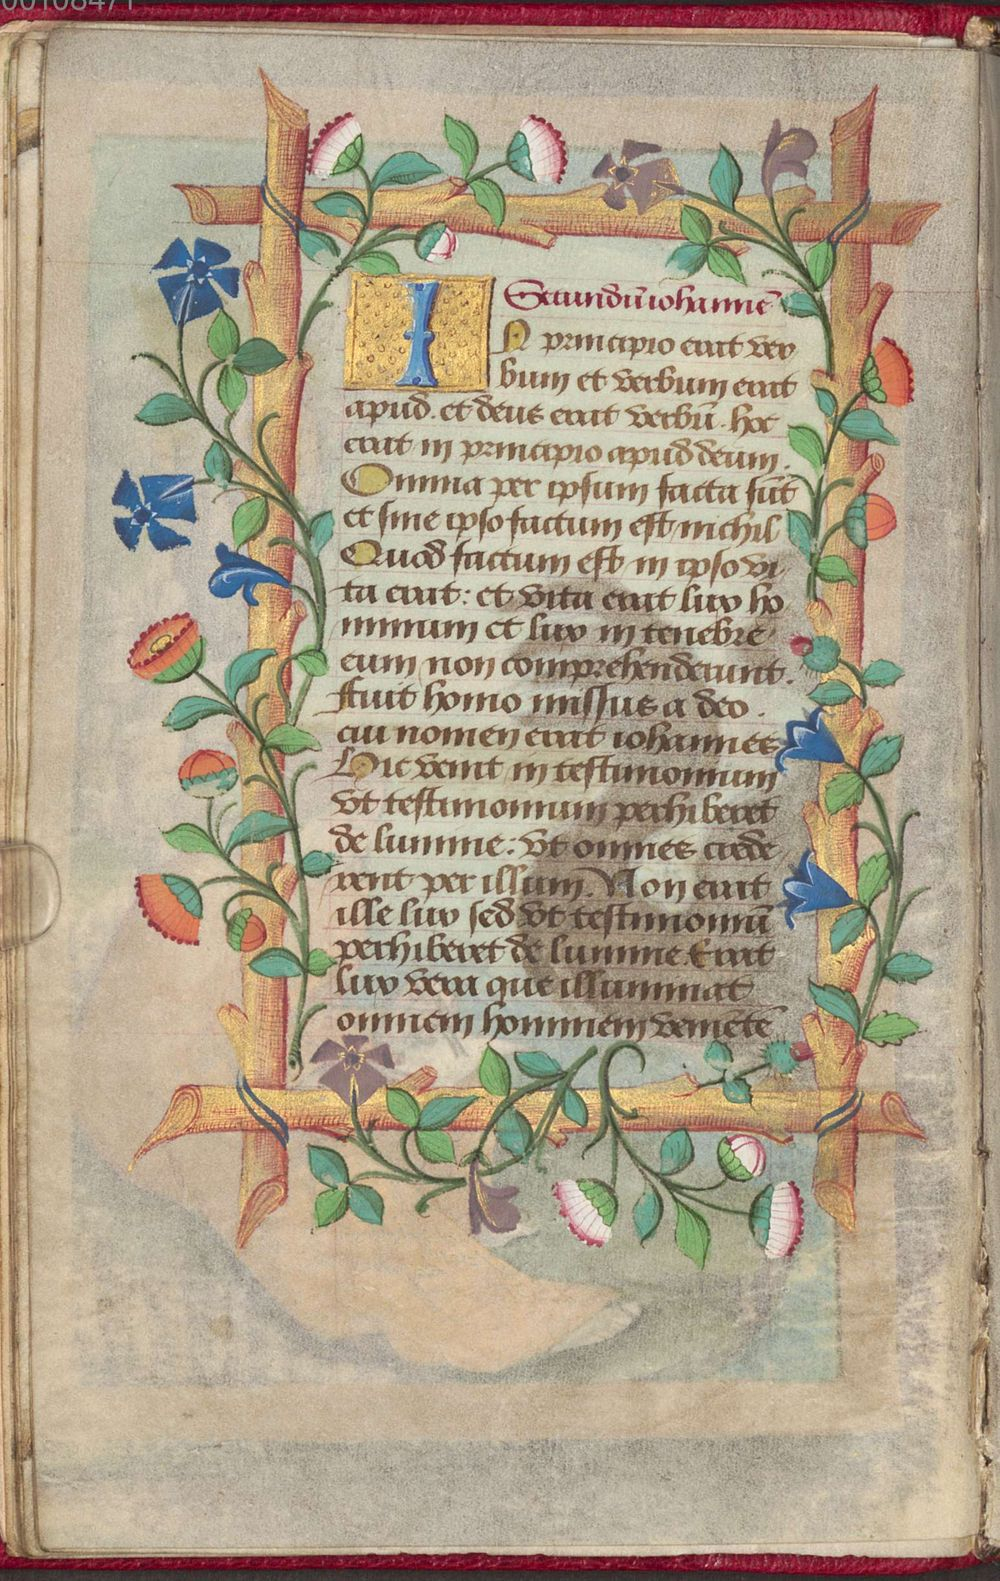 00108471
Secundũ iohannẽ
IN principio erat ver
bum et verbum erat
apud. et deus erat verbũ. hoc
erat in principio apud deum.
Omnia per ipsum facta sũt
et sine ipso factum est nichil
Quod factum est in ipso vi
ta erat: et vita erat lux ho
minum et lux in tenebre
eum non comprehenderunt.
Fuit homo missus a deo.
cui nomen erat iohannes
Hic venit in testimonium
vt testimonium perhiberet
de lumine: vt omnes crede
rent per illum. Non erat
ille lux sed vt testimoniũ
perhiberet de lumine Erat
lux vera que illuminat
omnem hominem veniẽtẽ